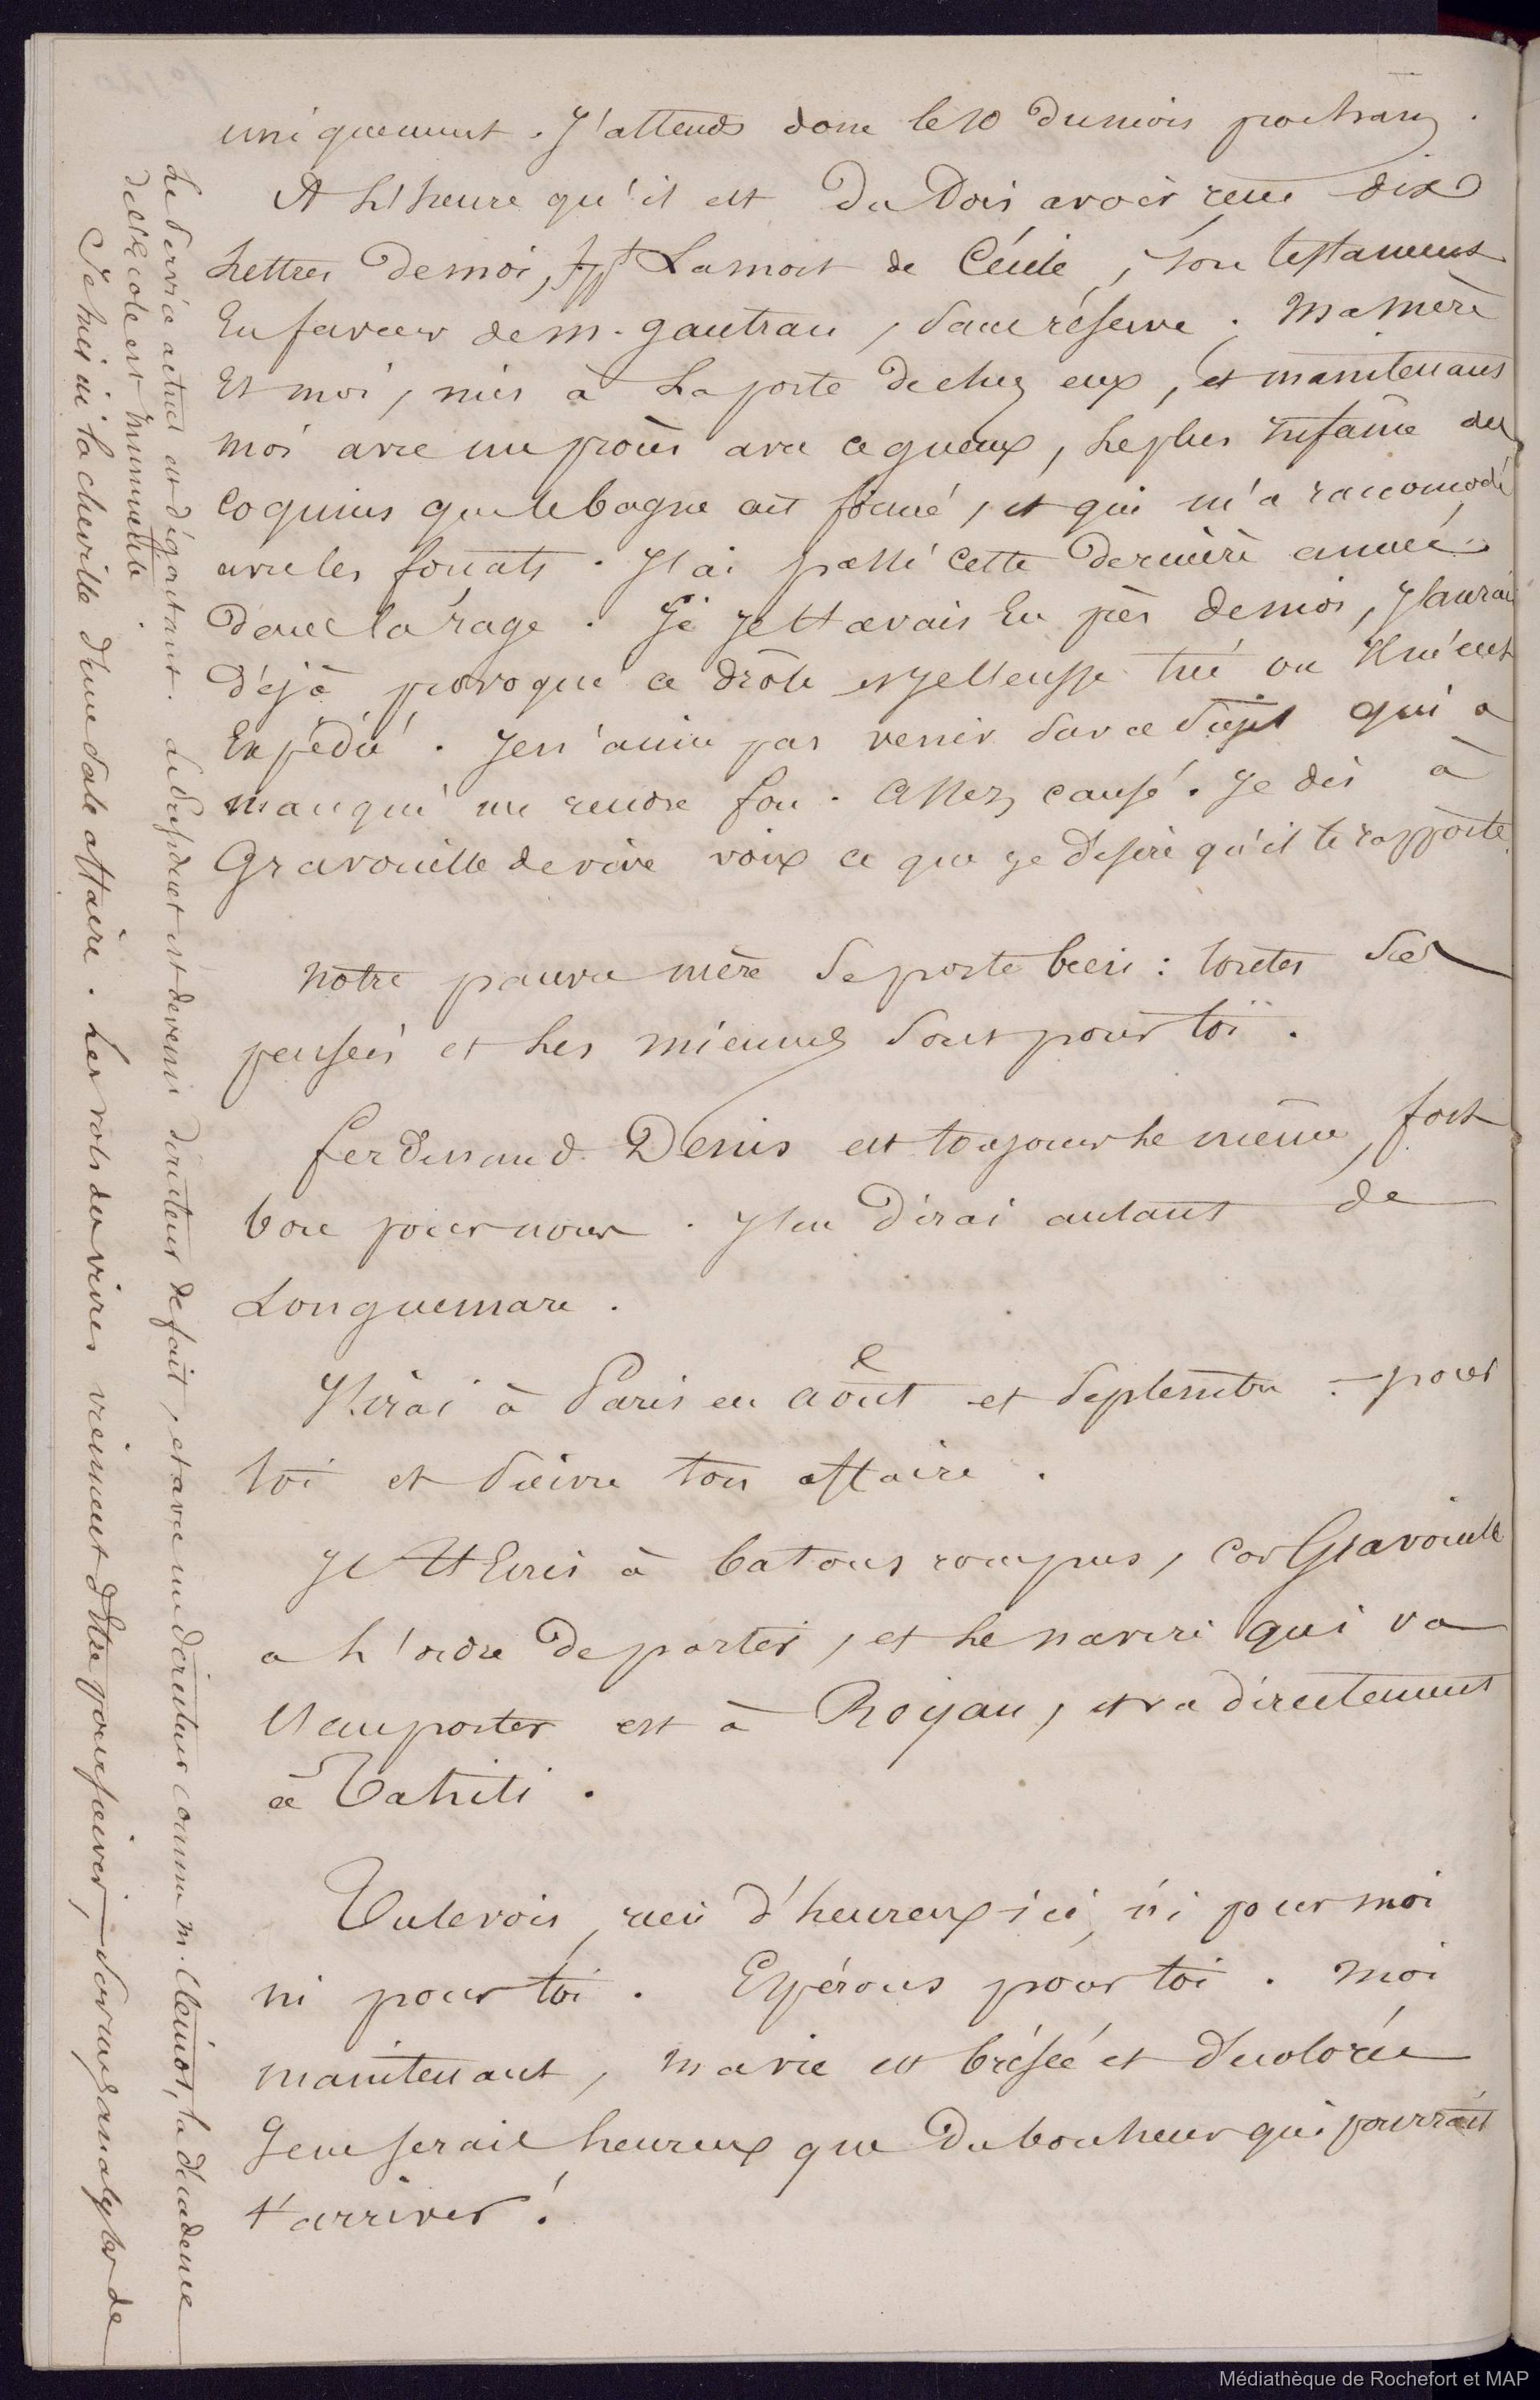 uniquement. J'attends donc le 10 du mois prochain.
A l'heure qu'il est Du Dois avoir reçu dix
Lettres de moi, La mort de Cécile, son testament
En faveur de M. Gautrau, sans réserve. Ma mère
Et moi, mis à La porte de chez eux, et maintenant
moi avec un procès avec ce gueux, le plus infâme des
coquins que le bagne ait formé, et qui m'a raccomodé
avec les forçats. J'ai passé cette dernière année
dans la rage. Si je tt avais Eu près de moi, J'aurais
Déjà provoqué ce drôle et je l'eusse tué ou il m'eut
Expédié. Je n'aime pas venir sur ce sujet qui a
manqué me rendre fou. Assez causé. Je dis à
Gravouille de vive voix ce que je désire qu'il te rapporte.
Notre pauvre mère se porte bien : toutes ses
pensées et les miennes sont pour toi.
ferdinand Denis est toujours le même, fort
bon pour nous. J'en dirai autant de
Longuemare.
J'irai à Paris en août et septembre - pour
toi et suivre ton affaire.
Je tt Ecris à batons rompus, car Gravouille
a l'ordre de partir, et le navire qui va
l'emporter est à Royan, et va directement
à Tahiti.
Tu le vois, rien d'heureux ici, ni pour moi
ni pour toi. Espérons pour toi. Moi
maintenant, ma vie est brisée et décolorée
Je ne serais heureux que du bonheur qui pourrait
t'arriver !
Le service actuel est dégoutant. Le président est devenu directeur de fait, et avec un directeur comme M. Clémot, la décadence
de l'Ecole est imminente.
Je suis ici la cheville d'une sale affaire. Les vols des vivres viennent d'être poursuivis, sur mes analyses de
Médiathèque de Rochefort et MAP